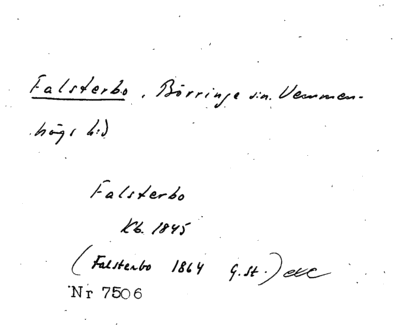 Falsterbo, Börringe sn. Vemmen-
högs hd
Falsterbo
Kb. 1845
(Falsterbo 1864 G.st.)
Nr 7506